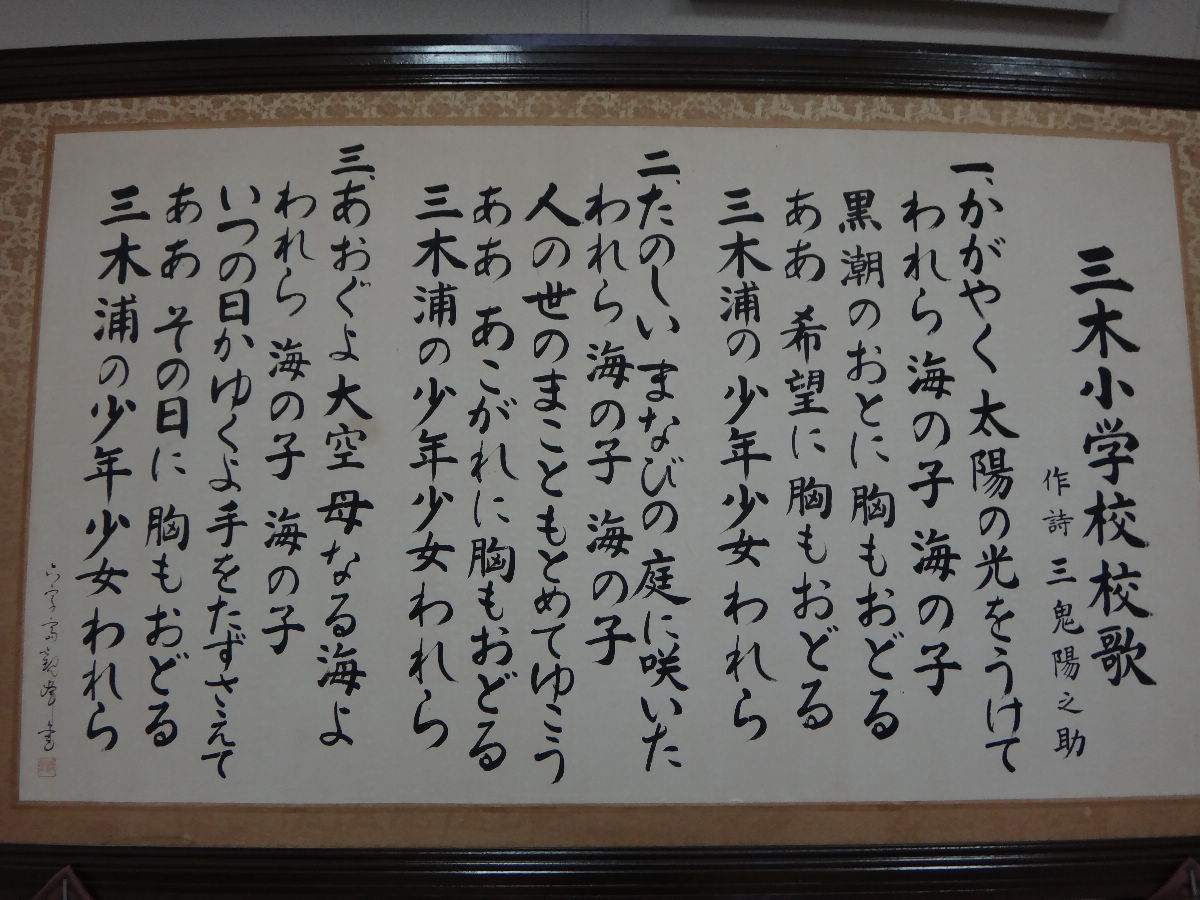 三木小学校校歌
作詩 三鬼陽之助
一、かがやく太陽の光をうけて
われら海の子 海の子
黒潮のおとに胸もおどる
ああ 希望に胸もおどる
三木浦の少年少女われら
二、たのしい まなびの庭に咲いた
われら 海の子 海の子
人の世のまこともとめてゆこう
ああ あこがれに胸もおどる
三木浦の少年少女われら
三、あおぐよ大空 母なる海よ
われら 海の子 海の子
いつの日かゆくよ手をたずさえて
ああ その日に 胸もおどる
三木浦の少年少女われら